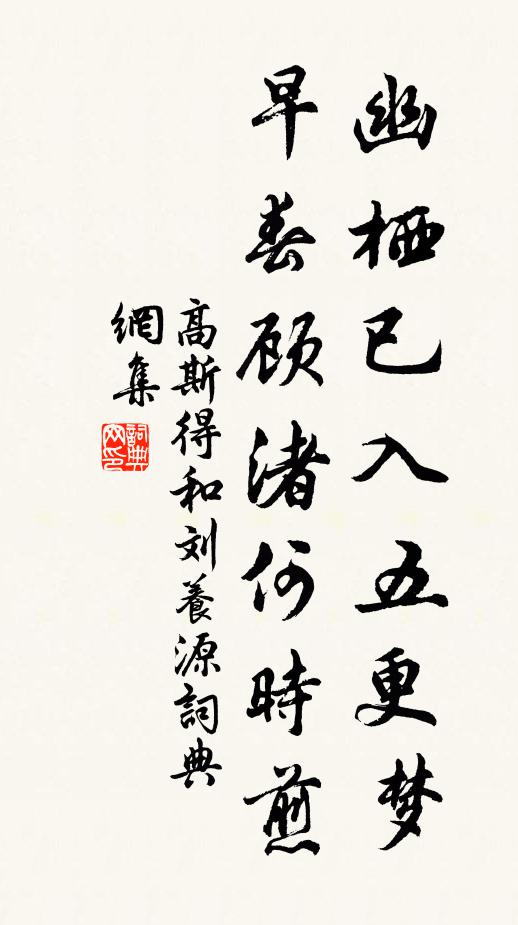 幽栖已入五更梦
早春顾渚何時煎
高斯得和刘養源詞典
網集
詞典
网印